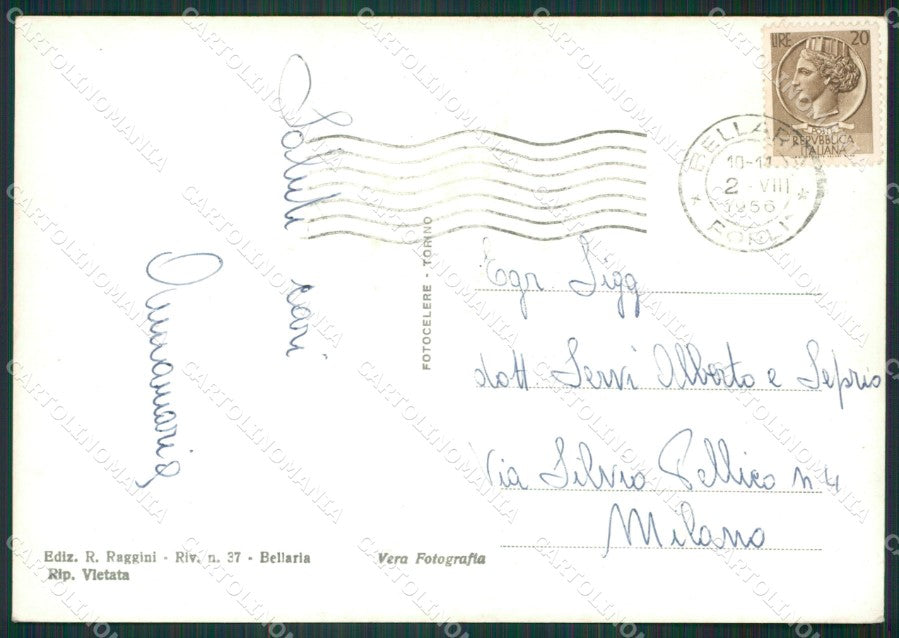 LIRE 20
REPVBBLICA
ITALIANA
BELLARIA
10-11
2 - VIII
1956
FORLI'
Saluti
cari
Annamaria
FOTOCELERE - TORINO
Egr Sigg
dott Servi Alberto e Seprio
Via Silvio Pellico n 4
Milano
Ediz. R. Raggini - Riv. n. 37 - Bellaria
Rip. Vietata
Vera Fotografia
CARTOLINOMANIA